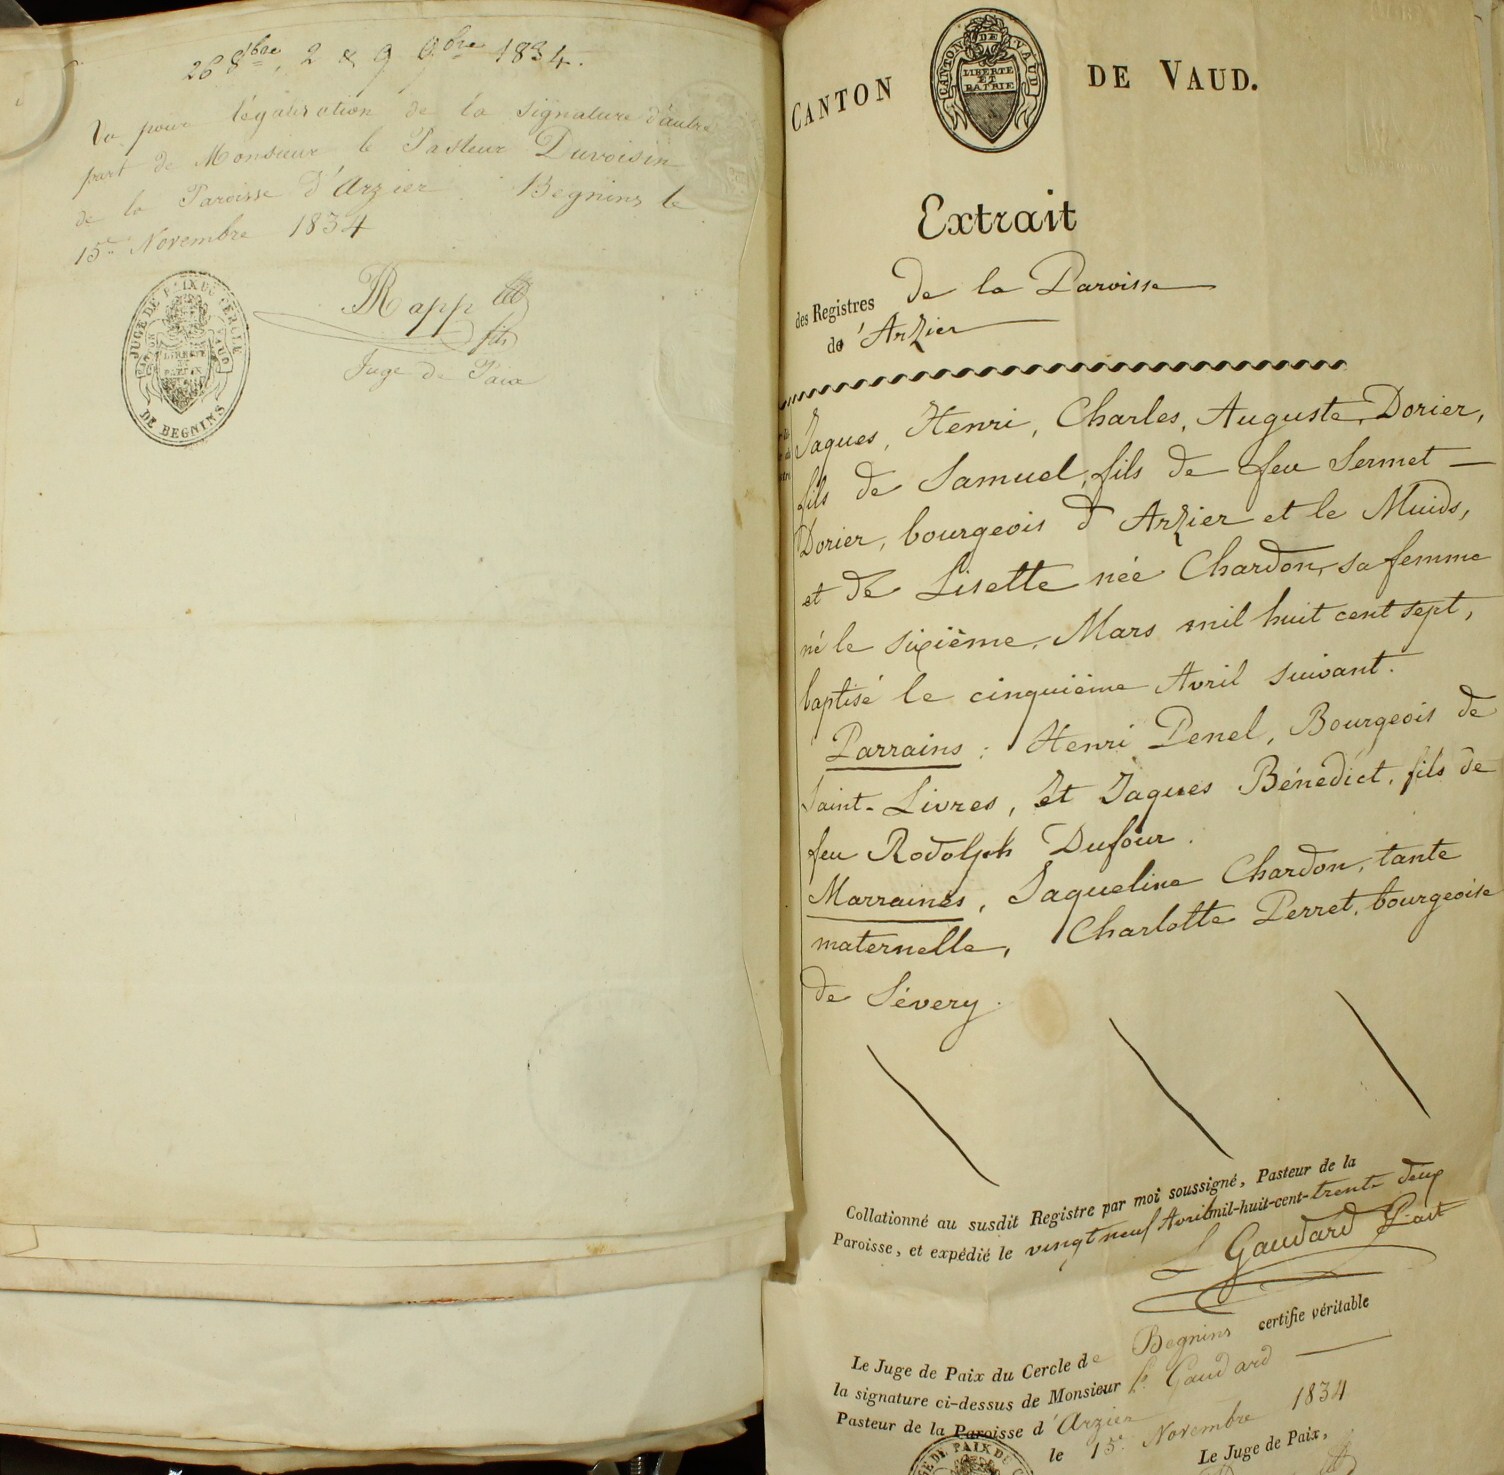 26 8bre, 2 & 9 9bre 1834.
Vu pour légalisation de la signature d'autre
part de Monsieur le Pasteur Duvoisin
de la Paroisse d'Arzier. Begnins le
15e Novembre 1834
Rapp
fils
Juge de Paix
JUGE DE PAIX DU CERCLE
LIBERTE
ET
PATRIE
DE BEGNINS
CANTON DE VAUD.
CANTON DE VAUD
LIBERTE
ET
PATRIE
Extrait
des Registres de la Paroisse
de 'Arzier
Jaques, Henri, Charles, Auguste, Dorier,
fils de Samuel, fils de feu Sermet
Dorier, bourgeois d'Arzier et le Muids,
et de Lisette née Chardon, sa femme
né le sixième, Mars mil huit cent sept,
baptisé le cinquième Avril suivant.
Parrains : Henri Penel, Bourgeois de
Saint-Livres, et Jaques Bénédict, fils de
feu Rodolph Dufour.
Marraines, Jaqueline Chardon, tante
maternelle, Charlotte Perret, bourgeoise
de Sévery.
Collationné au susdit Registre par moi soussigné, Pasteur de la
Paroisse, et expédié le vingt neuf Avril mil-huit-cent-trente deux
L Gaudard Past
Le Juge de Paix du Cercle de Begnins certifie véritable
la signature ci-dessus de Monsieur Ls Gaudard
Pasteur de la Paroisse d'Arzier
le 15e Novembre 1834
Le Juge de Paix,
GE DE PAIX DU C